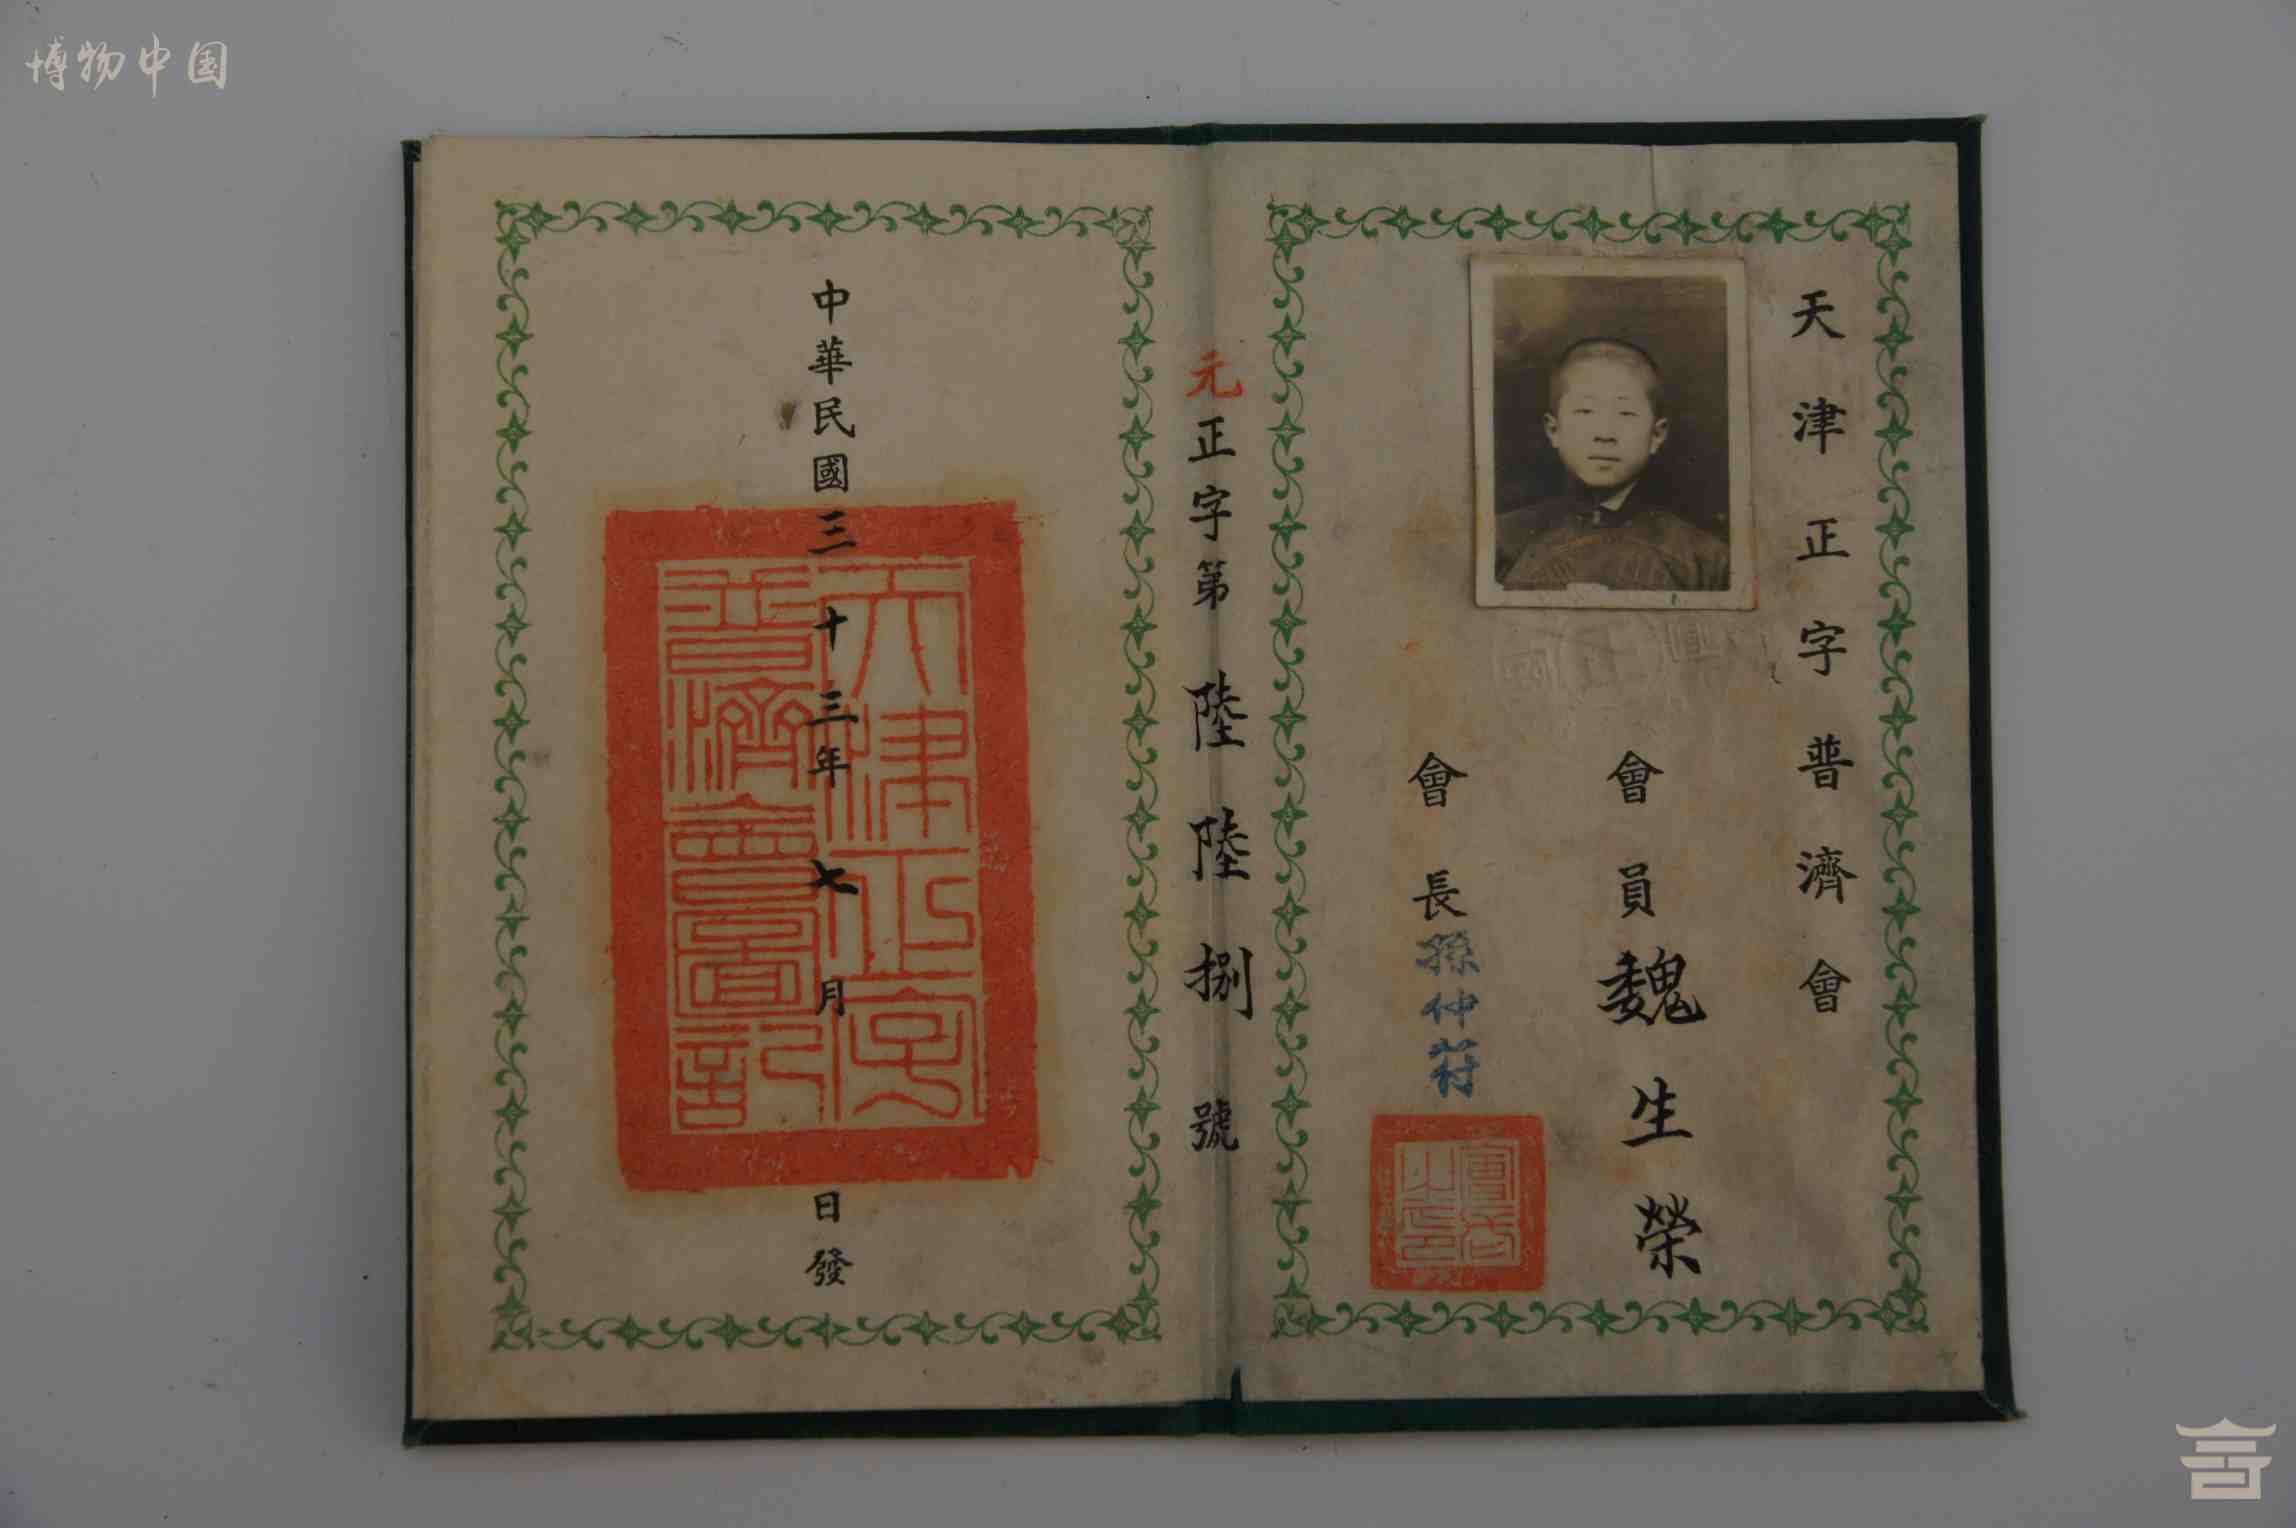 博物中国
天津正字普濟會
會員魏生榮
會長孫仲符
元正字第陸陸捌號
中華民國三十三年七月日發
天津正字
普濟會圖記